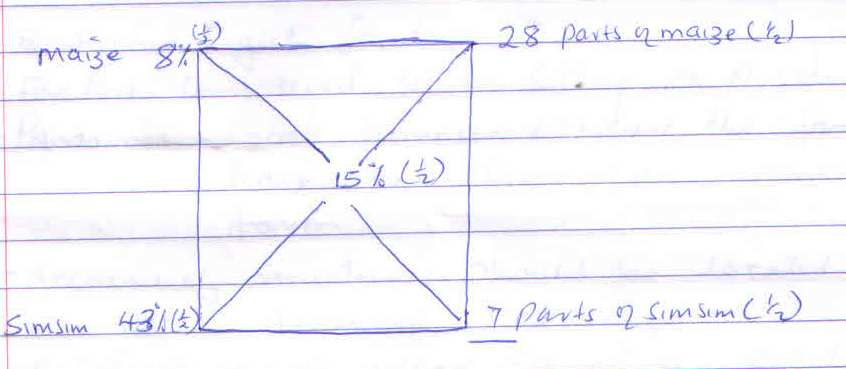 (½)
maize 8% 28 parts of maize (½)
15% (½)
Simsim 43% (½) 7 parts of simsim (½)